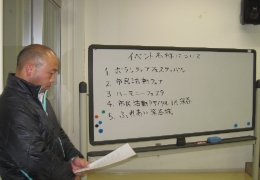 イベント名称について
1. ボランティアフェスティバル
2. 市民活動フェア
3. ハーモニーフェスタ
4. 市民活動
5. ふれあい